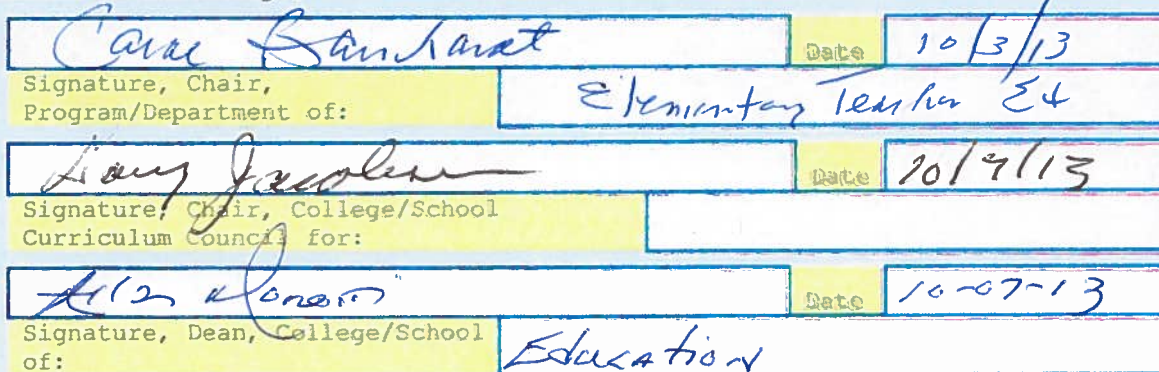 Carol Barnhardt Date 10/3/13
Signature, Chair,
Program/Department of: Elementary Teacher Ed
Date 10/7/13
Signature, Chair, College/School
Curriculum Council for:
Date 10-07-13
Signature, Dean, College/School
of: Education